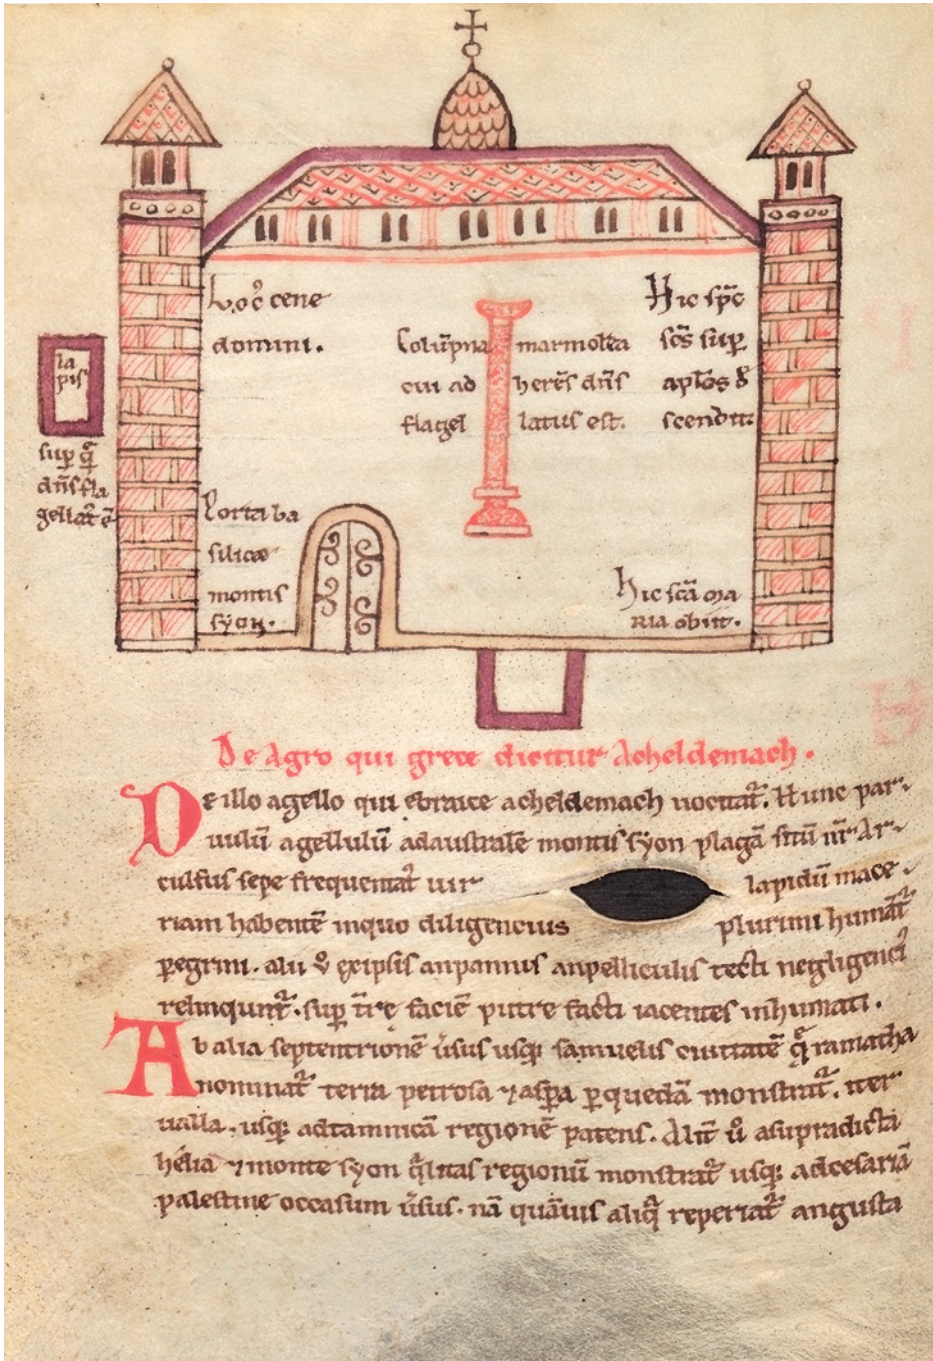 Loc̉ cene
domini.
Colūpna marmorea
cui adherēs dn̄s
flagellatus est.
Hic sp̄c
sc̄s sup̲
apl̄os
scendit.
la
pis
sup̲ q̄
dn̄s fla
gellat̄ ē
Porta ba
silicæ
montis
syon.
Hic sc̄a ma
ria obiit.
De Agro qui grece dicitur Acheldemach.
De illo agello qui ebraice acheldemach uocitat̄. Hunc par
uulū agellulū ad australē montis syon plagā sitū nr̄ Ar
culfus sepe frequentat uir lapidū mace
riam habentē inquo diligencius plurimi humāt̄
p̲egrini. alii ů exipsis aupannis aupelliculis tecti negligenci᷒
relinqunt̄. sup̲ tr̄e faciē putre facti iacentes inhumati.
Ab alia septentrionē ůsus usq; samuelis ciuitatē q̄ ramatha
nominat̄ terra petrosa ⁊ asp̲a p̲ quedā monstrat̄. iter
ualla. usq; ad tamnicā regionē patens. Alit̄ ů asupradicta
hélia ⁊ monte syon q̄litas regionū monstrat̄ usq; adcesariā
palestine occasum ůsus. nā quāuis aliq̄ reperiat̄ angusta